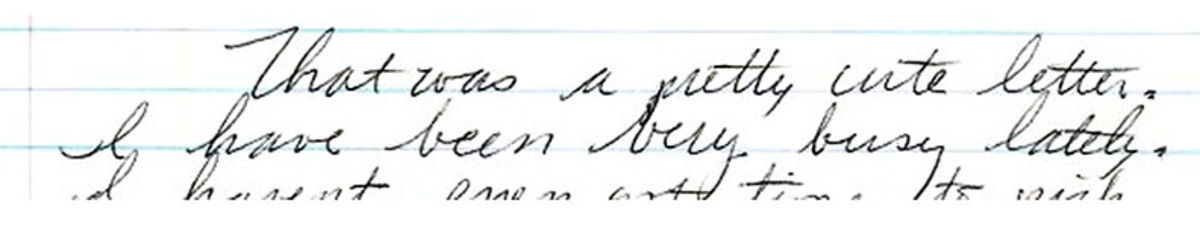 That was a pretty cute letter.
I have been very busy lately.
I havent even time to